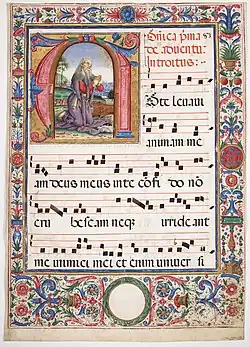 Dñica p̃ma
de aduentu.
Introitus:
A Dte leuaui
animam me
am deus meus in te cõfi do nõ
eru bescam neq; irride ant
me inimici mei et enim uniuer si